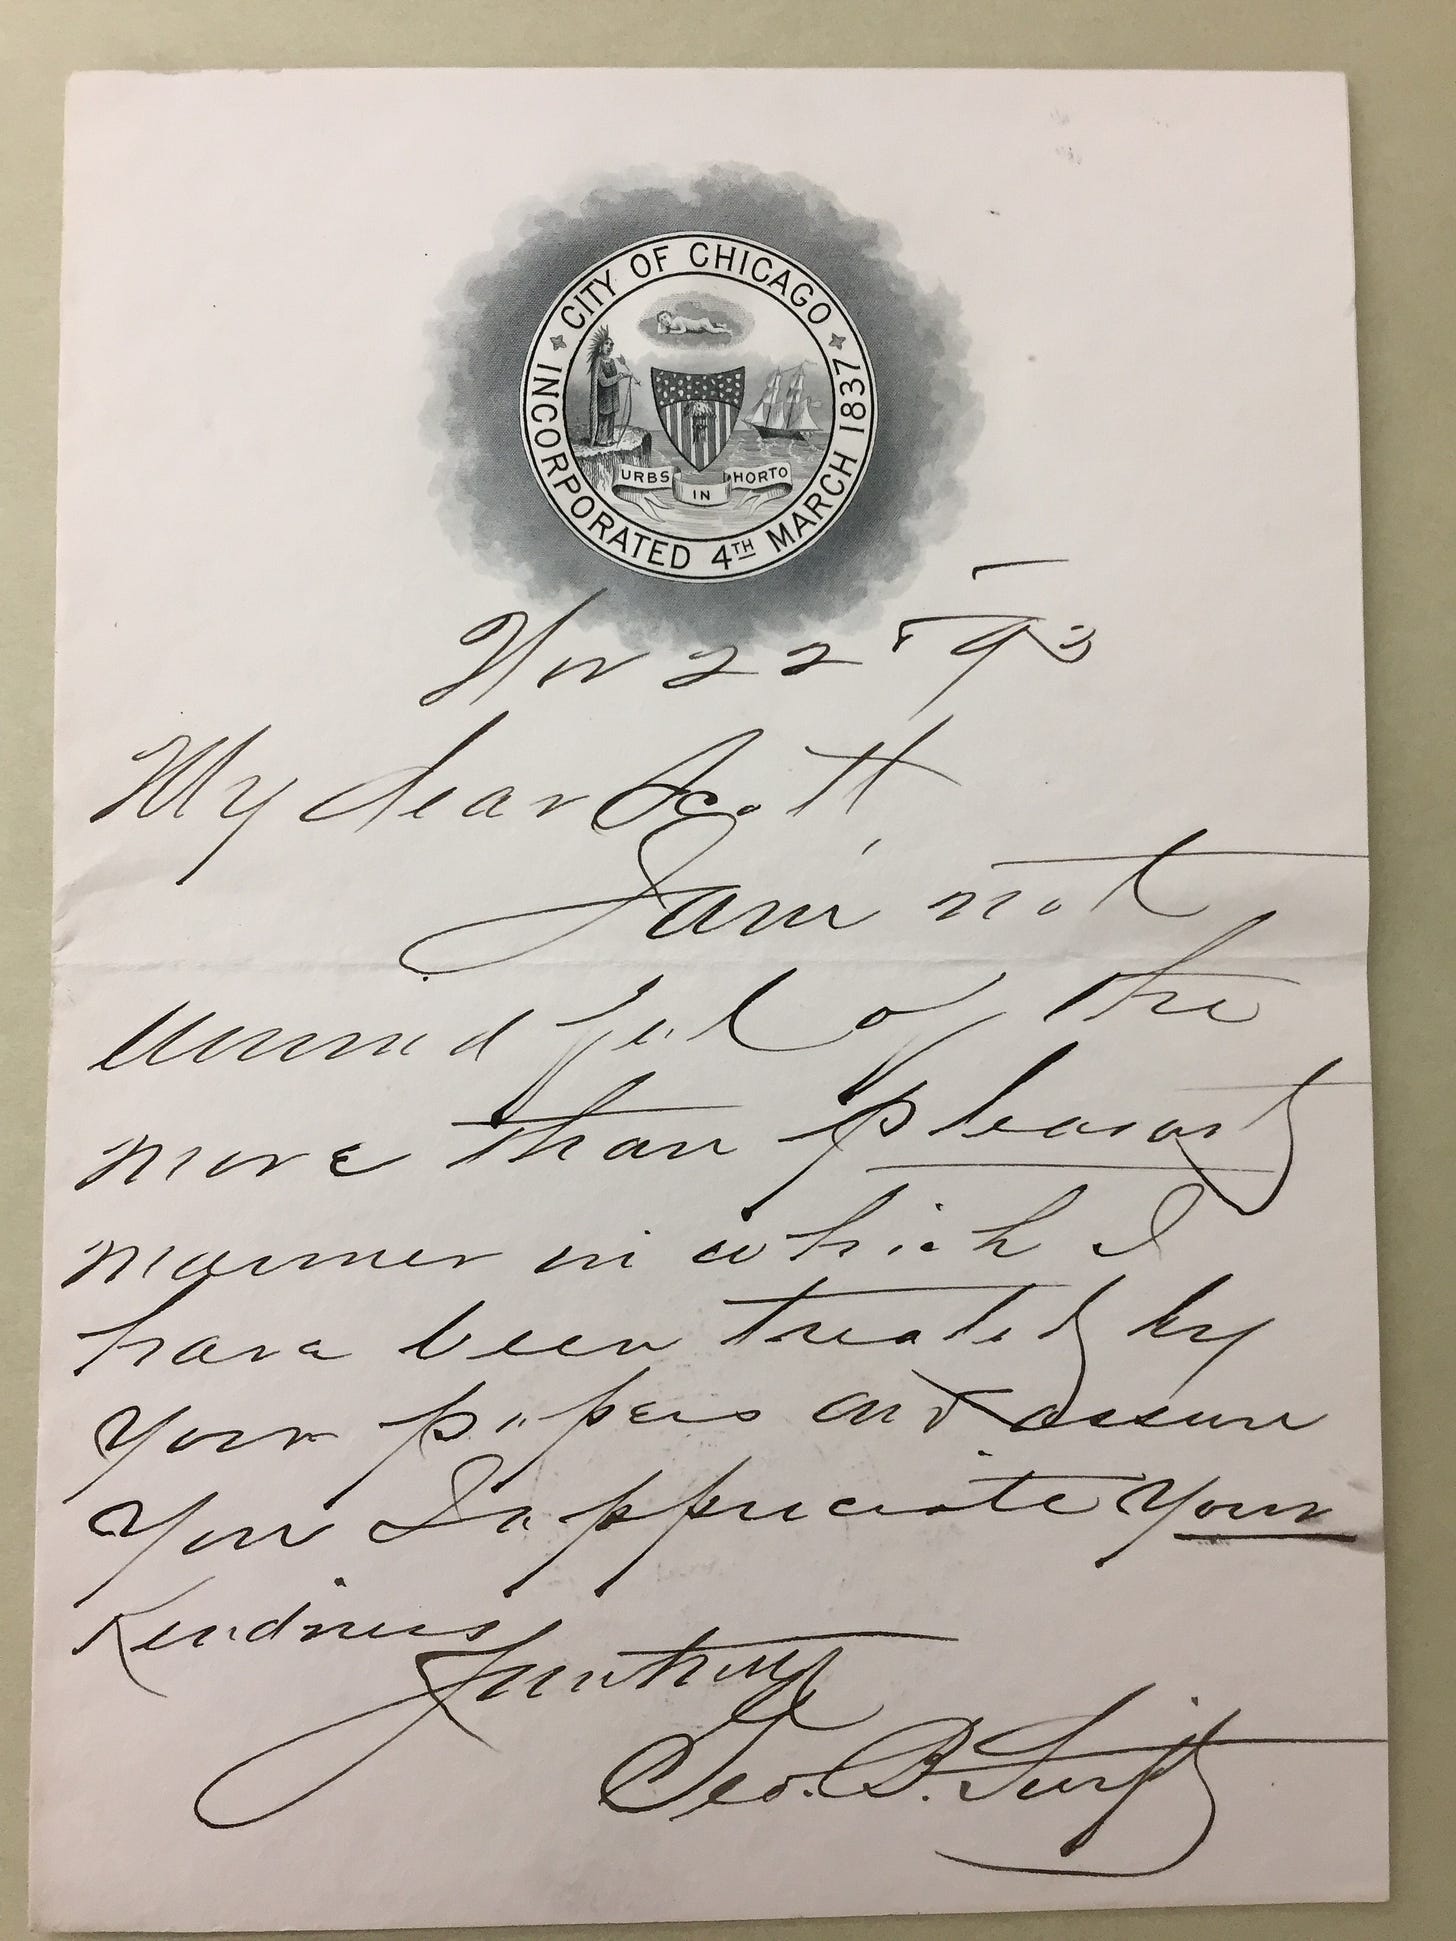 CITY OF CHICAGO
INCORPORATED 4TH MARCH 1837
URBS IN HORTO
Nov 22 '93
My dear Scott
I am not
unmindful of the
more than pleasant
manner in which I
have been treated by
your papers and assure
you I appreciate your
Kindness
Geo. B. Swift